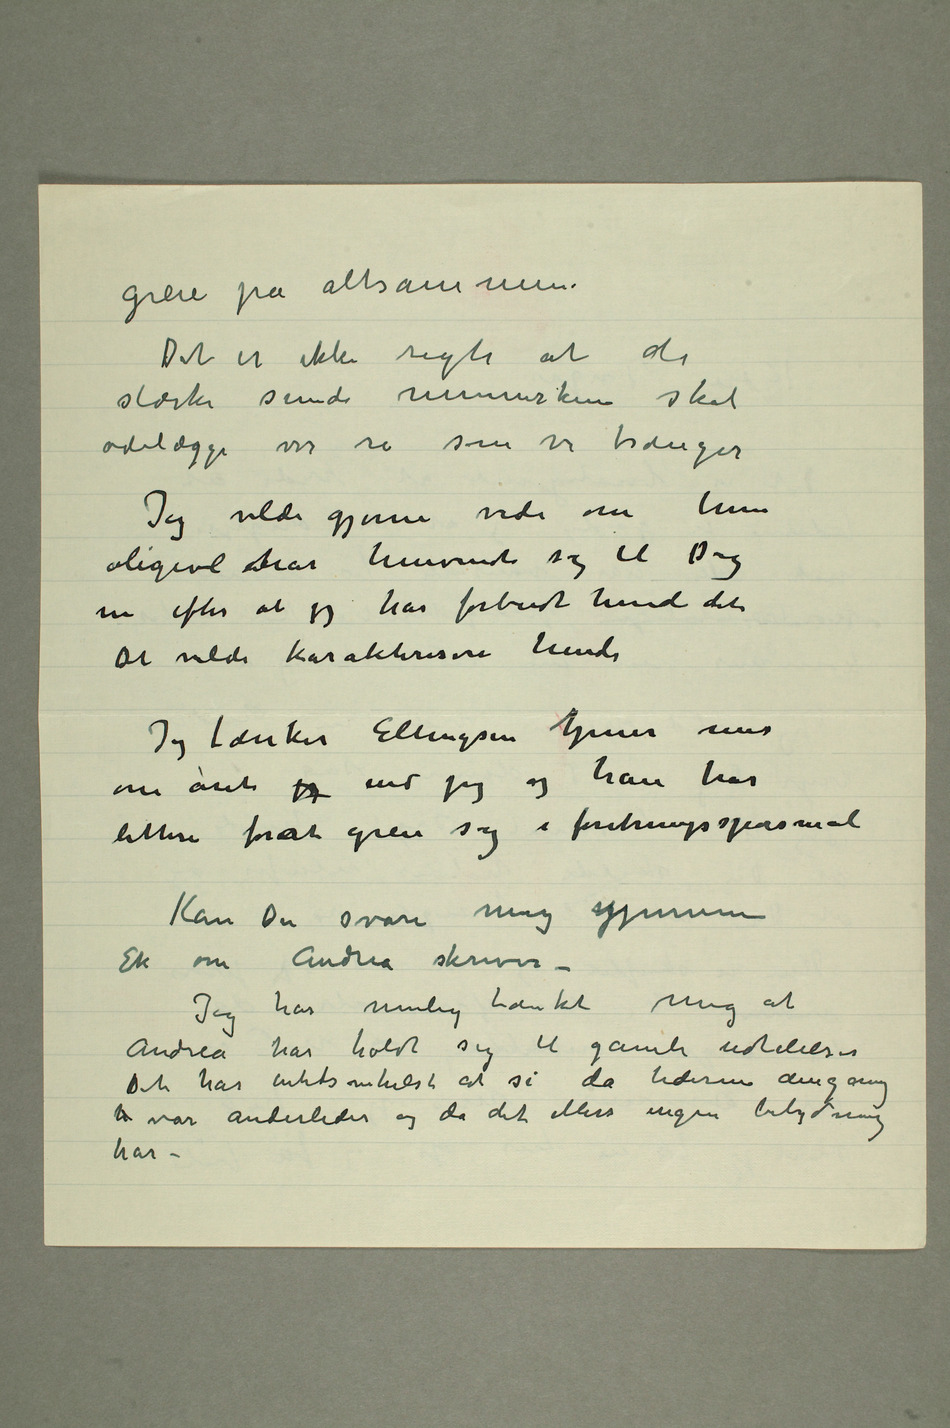 greie på altsammen.
Det er ikke rigti at de
stærke sunde menneskene skal
ødelægge vor ro som vi trænger
Jeg vilde gjerne vide om hun
aligevel har henvendt sig til Dig
nu efter at jeg har forbudt hende det
Det vilde karakterisere hende
Jeg tænker Ellingsen tjener mer
om året jeg end jeg og han har
lettere forat greie sig i foretningsspørsmål
Kan Du svare mig gjennem
Ek om Andrea skriver –
Jeg har nemlig tænkt mig at
Andrea har holdt sig til gamle udtalelser
Det har intetsomhelst at si da tiderne dengang
var anderledes og da det ellers ingen betydning
har –